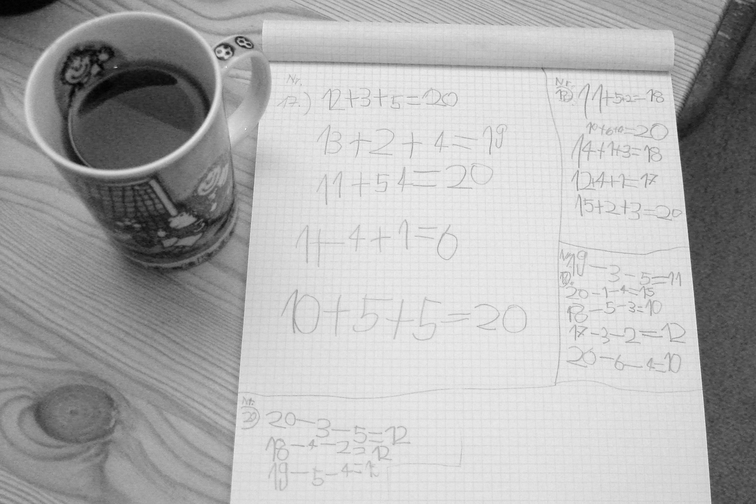 Nr.
17.) 12+3+5=20
13+2+4=19
11+54=20
1+4+1=6
10+5+5=20
Nr.
18) 11+5+2=18
14+1+3=18
12+4+1=17
15+2+3=20
Nr.
19 - 3 - 5=11
20-1-4=15
18-5-3=10
17-3-2=12
20-6-4=10
Nr.
20) 20-3-5=12
18-4-2=12
19-5-4=